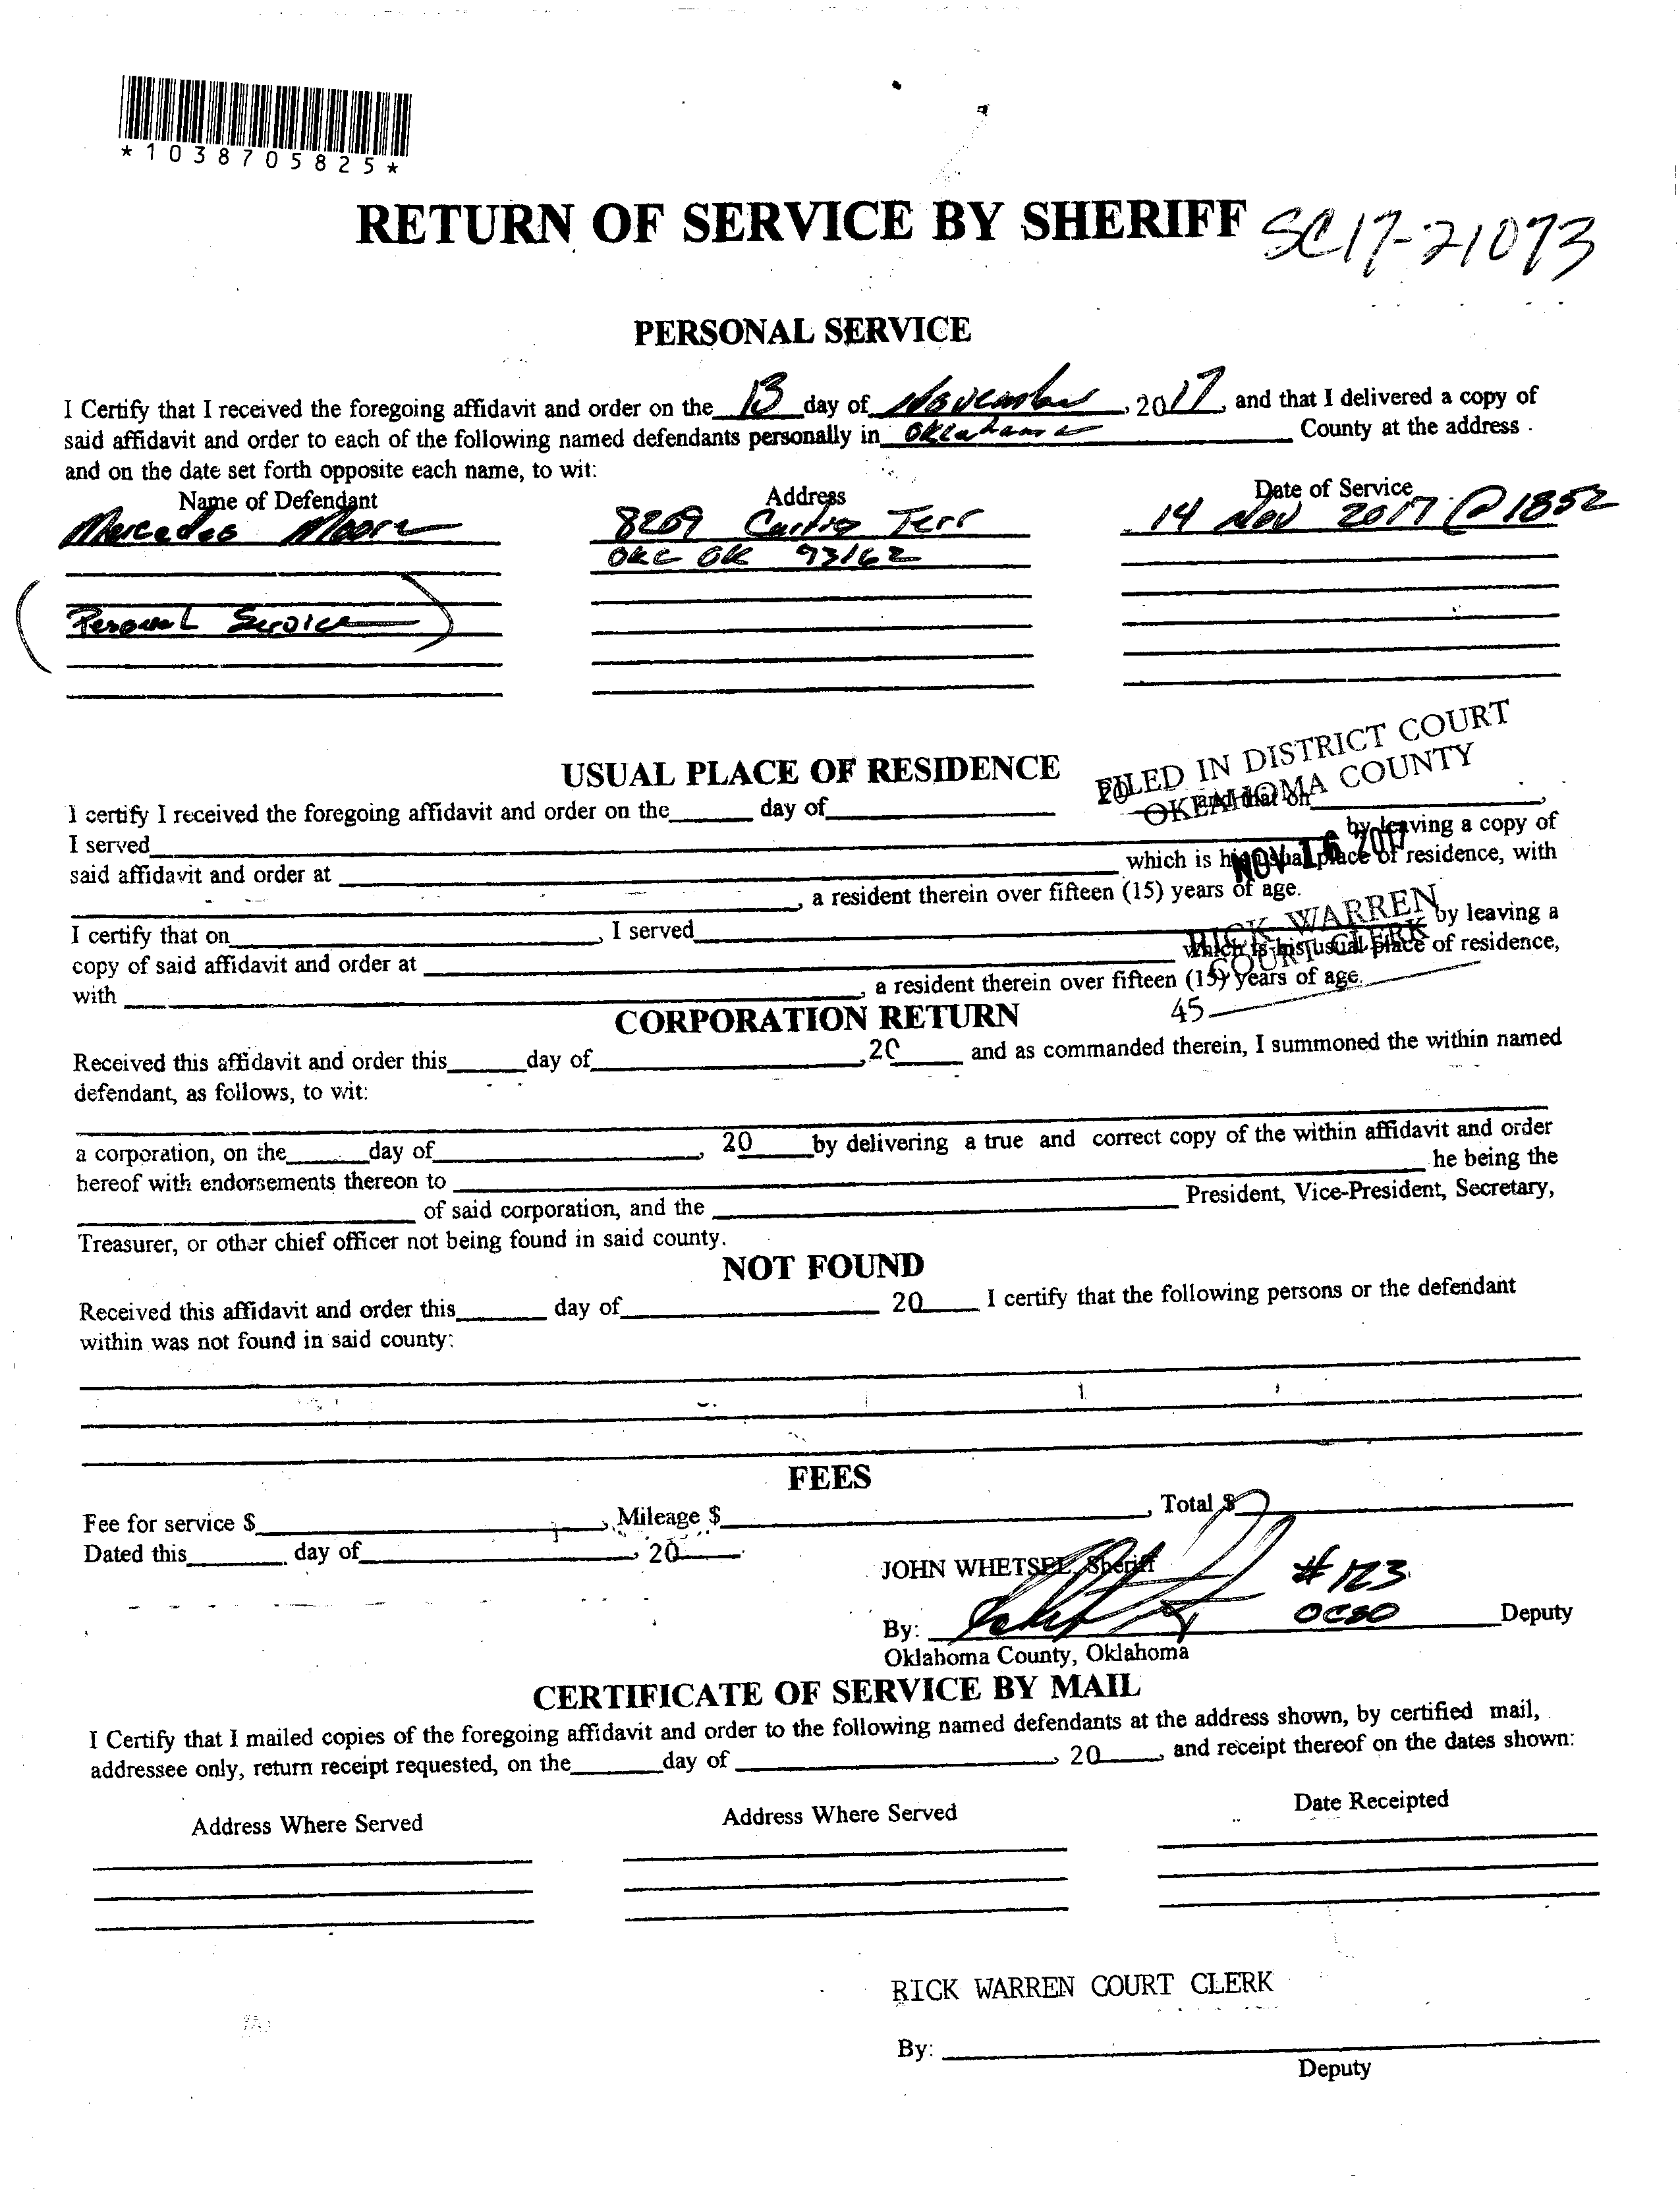 *1038705825*
RETURN OF SERVICE BY SHERIFF SC17-21073
PERSONAL SERVICE
I Certify that I received the foregoing affidavit and order on the 13 day of November, 2017, and that I delivered a copy of
said affidavit and order to each of the following named defendants personally in Oklahoma County at the address
and on the date set forth opposite each name, to wit:
Name of Defendant Address Date of Service
Mercedes Moore 8209 Terr 14 Nov 2017 @ 1852
OKC OK 73162
(Personal Service)
FILED IN DISTRICT COURT
OKLAHOMA COUNTY
NOV 16 2017
RICK WARREN
COURT CLERK
45
USUAL PLACE OF RESIDENCE
I certify I received the foregoing affidavit and order on the day of 20 and that on
I served by leaving a copy of
said affidavit and order at which is his usual place of residence, with
, a resident therein over fifteen (15) years of age.
I certify that on , I served by leaving a
copy of said affidavit and order at which is his usual place of residence,
with , a resident therein over fifteen (15) years of age.
CORPORATION RETURN
Received this affidavit and order this day of ,20 and as commanded therein, I summoned the within named
defendant, as follows, to wit:
a corporation, on the day of , 20 by delivering a true and correct copy of the within affidavit and order
hereof with endorsements thereon to he being the
of said corporation, and the President, Vice-President, Secretary,
Treasurer, or other chief officer not being found in said county.
NOT FOUND
Received this affidavit and order this day of 20 I certify that the following persons or the defendant
within was not found in said county:
FEES
Fee for service $ , Mileage $ , Total $
Dated this day of , 20
JOHN WHETSEL, Sheriff #123
By: OCSO Deputy
Oklahoma County, Oklahoma
CERTIFICATE OF SERVICE BY MAIL
I Certify that I mailed copies of the foregoing affidavit and order to the following named defendants at the address shown, by certified mail,
addressee only, return receipt requested, on the day of , 20 , and receipt thereof on the dates shown:
Address Where Served Address Where Served Date Receipted
RICK WARREN COURT CLERK
By:
Deputy